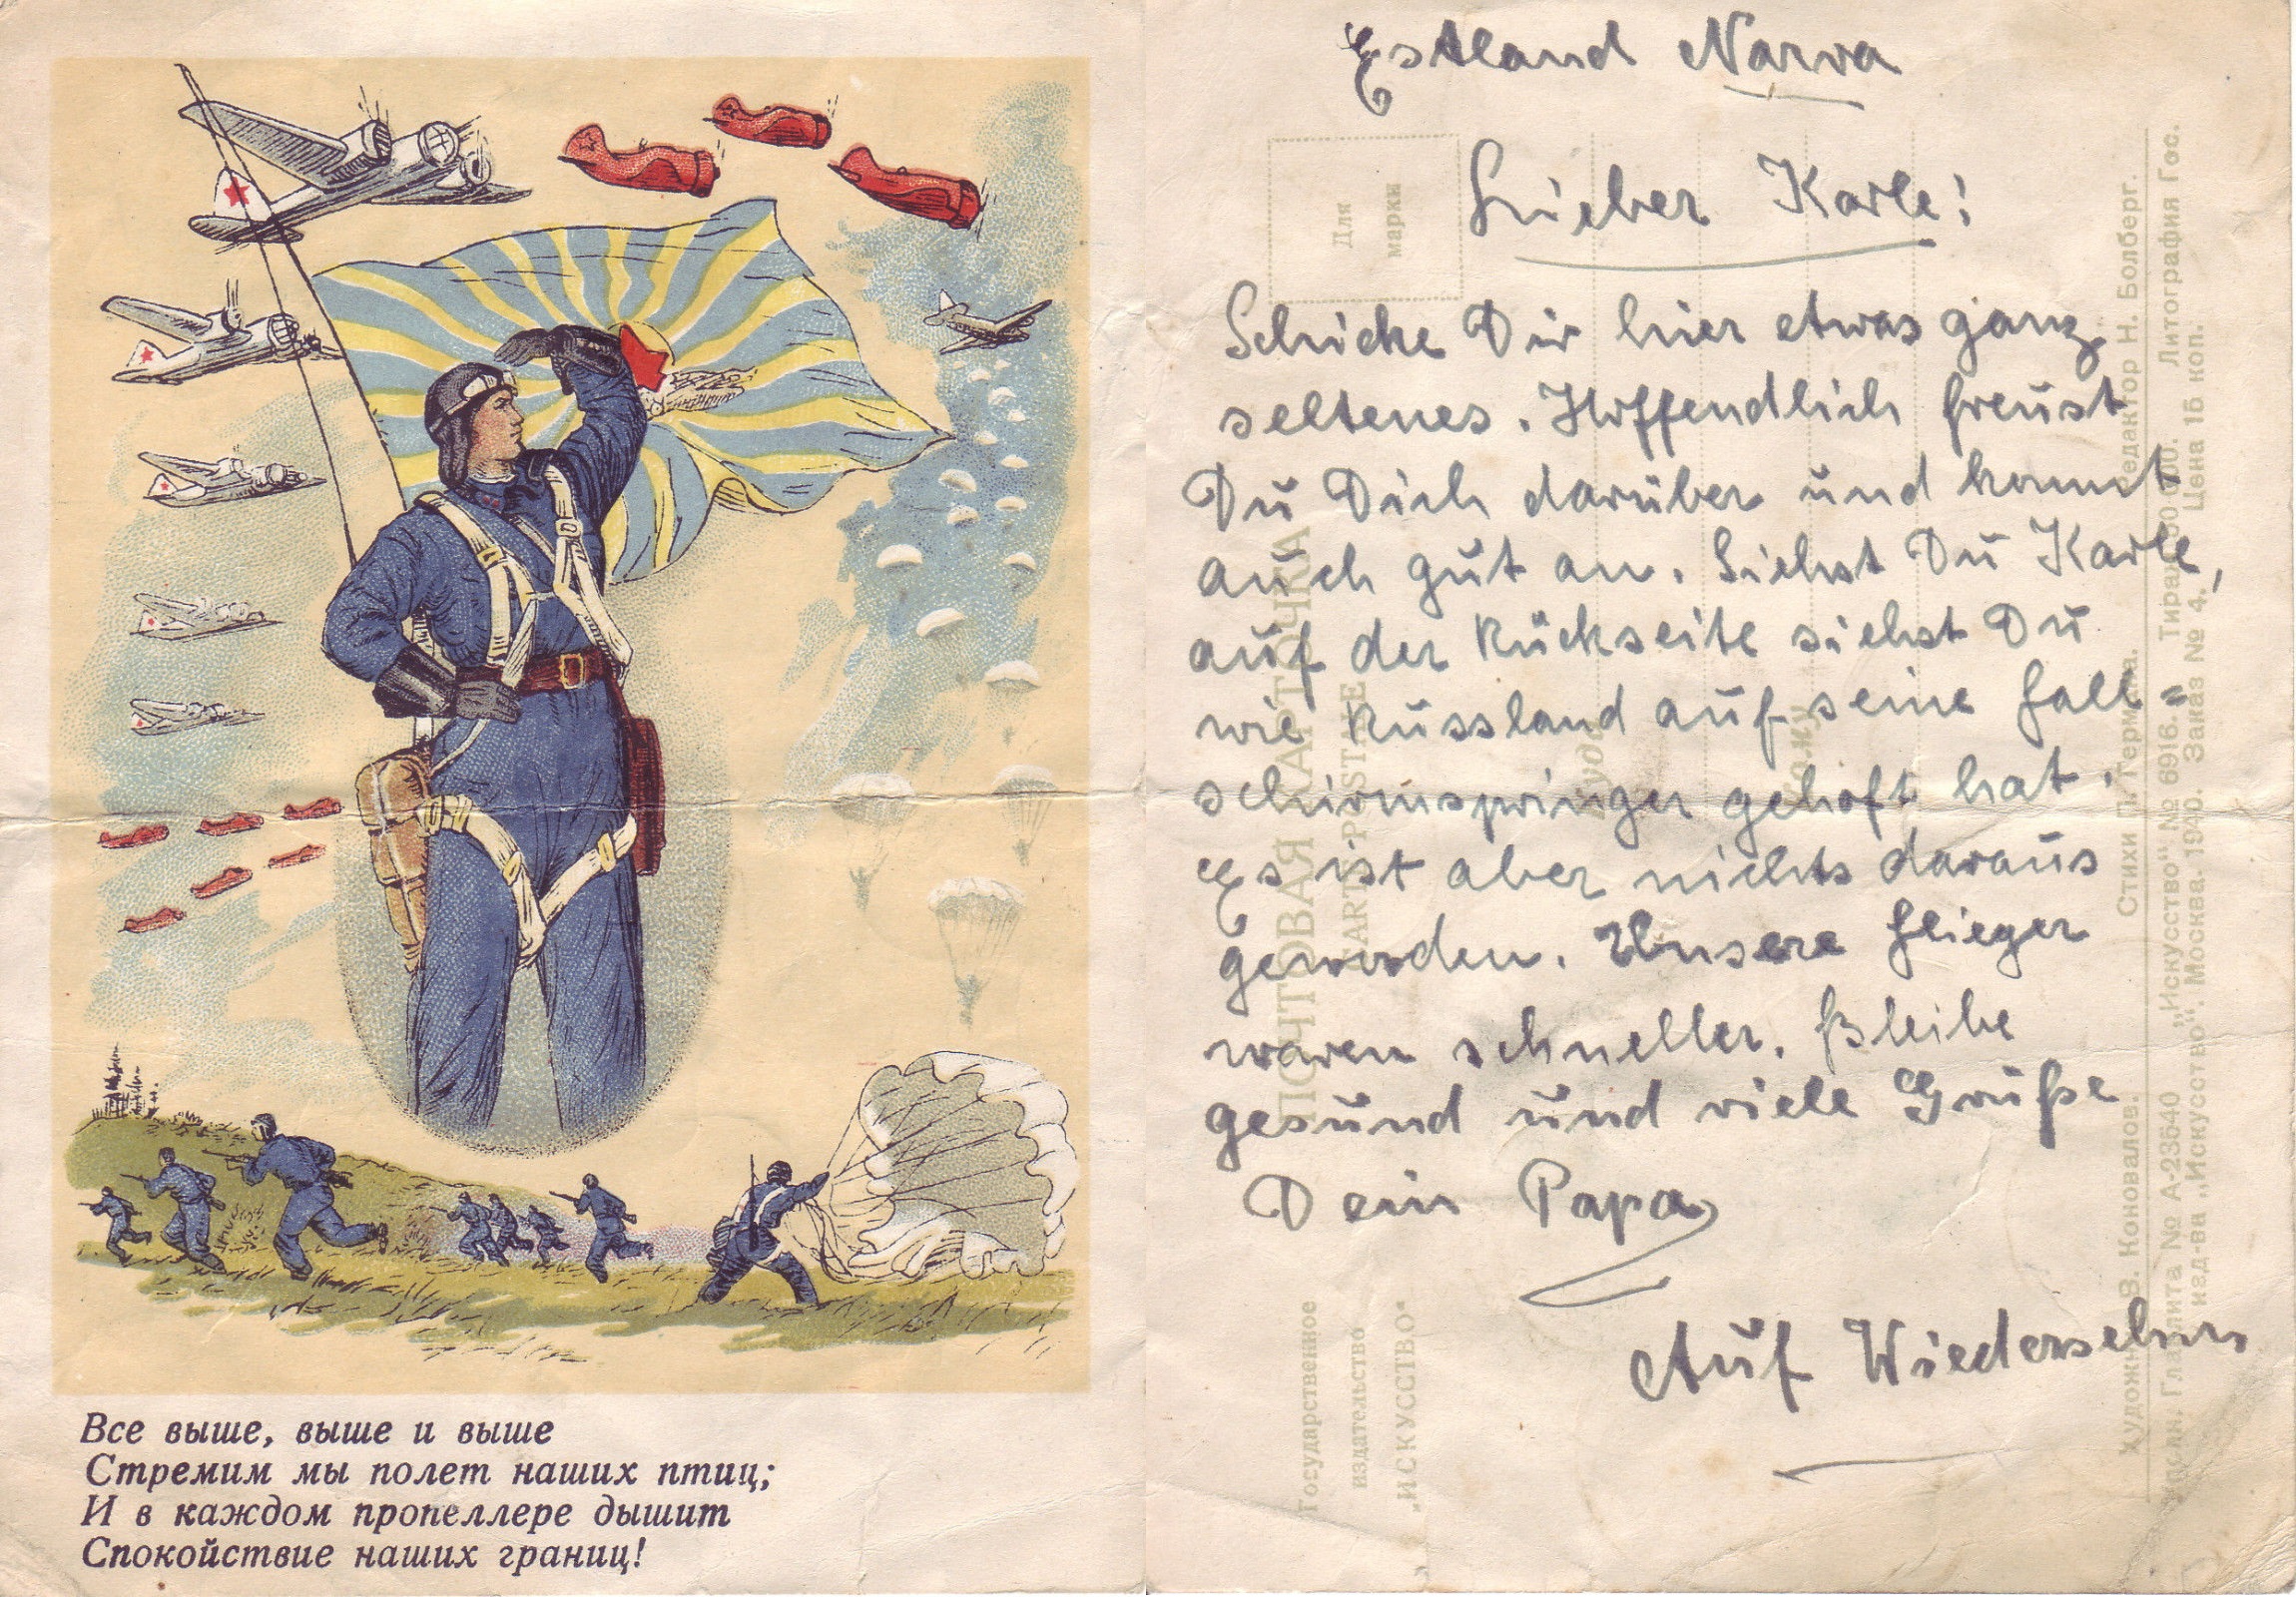 Все выше, выше и выше
Стремим мы полет наших птиц;
И в каждом пропеллере дышит
Спокойствие наших границ!
Estland Narva
Lieber Karle!
Schicke Dir hier etwas ganz
seltenes. Hoffendlich freust
Du Dich darüber und kommt
auch gut an. Siehst Du Karle,
auf der Rückseite siehst Du
wie Russland auf seine Fall=
schirmspringer gehoft hat.
Es ist aber nichts daraus
geworden. Unsere Flieger
waren schneller. Bleibe
gesund und viele Grüße
Dein Papa
Auf Wiedersehen
Для
марки
ПОЧТОВАЯ КАРТОЧКА
CARTE POSTALE
Куда
Кому
Государственное
издательство
„ИСКУССТВО“
Художник В. Коновалов. Стихи П. Германа. Редактор Н. Болберг.
№ А-23540 „Искусство“ № 6916. Тираж Литография Гос.
изд-ва „Искусство“. Москва. 1940. Заказ № 4. Цена 15 коп.